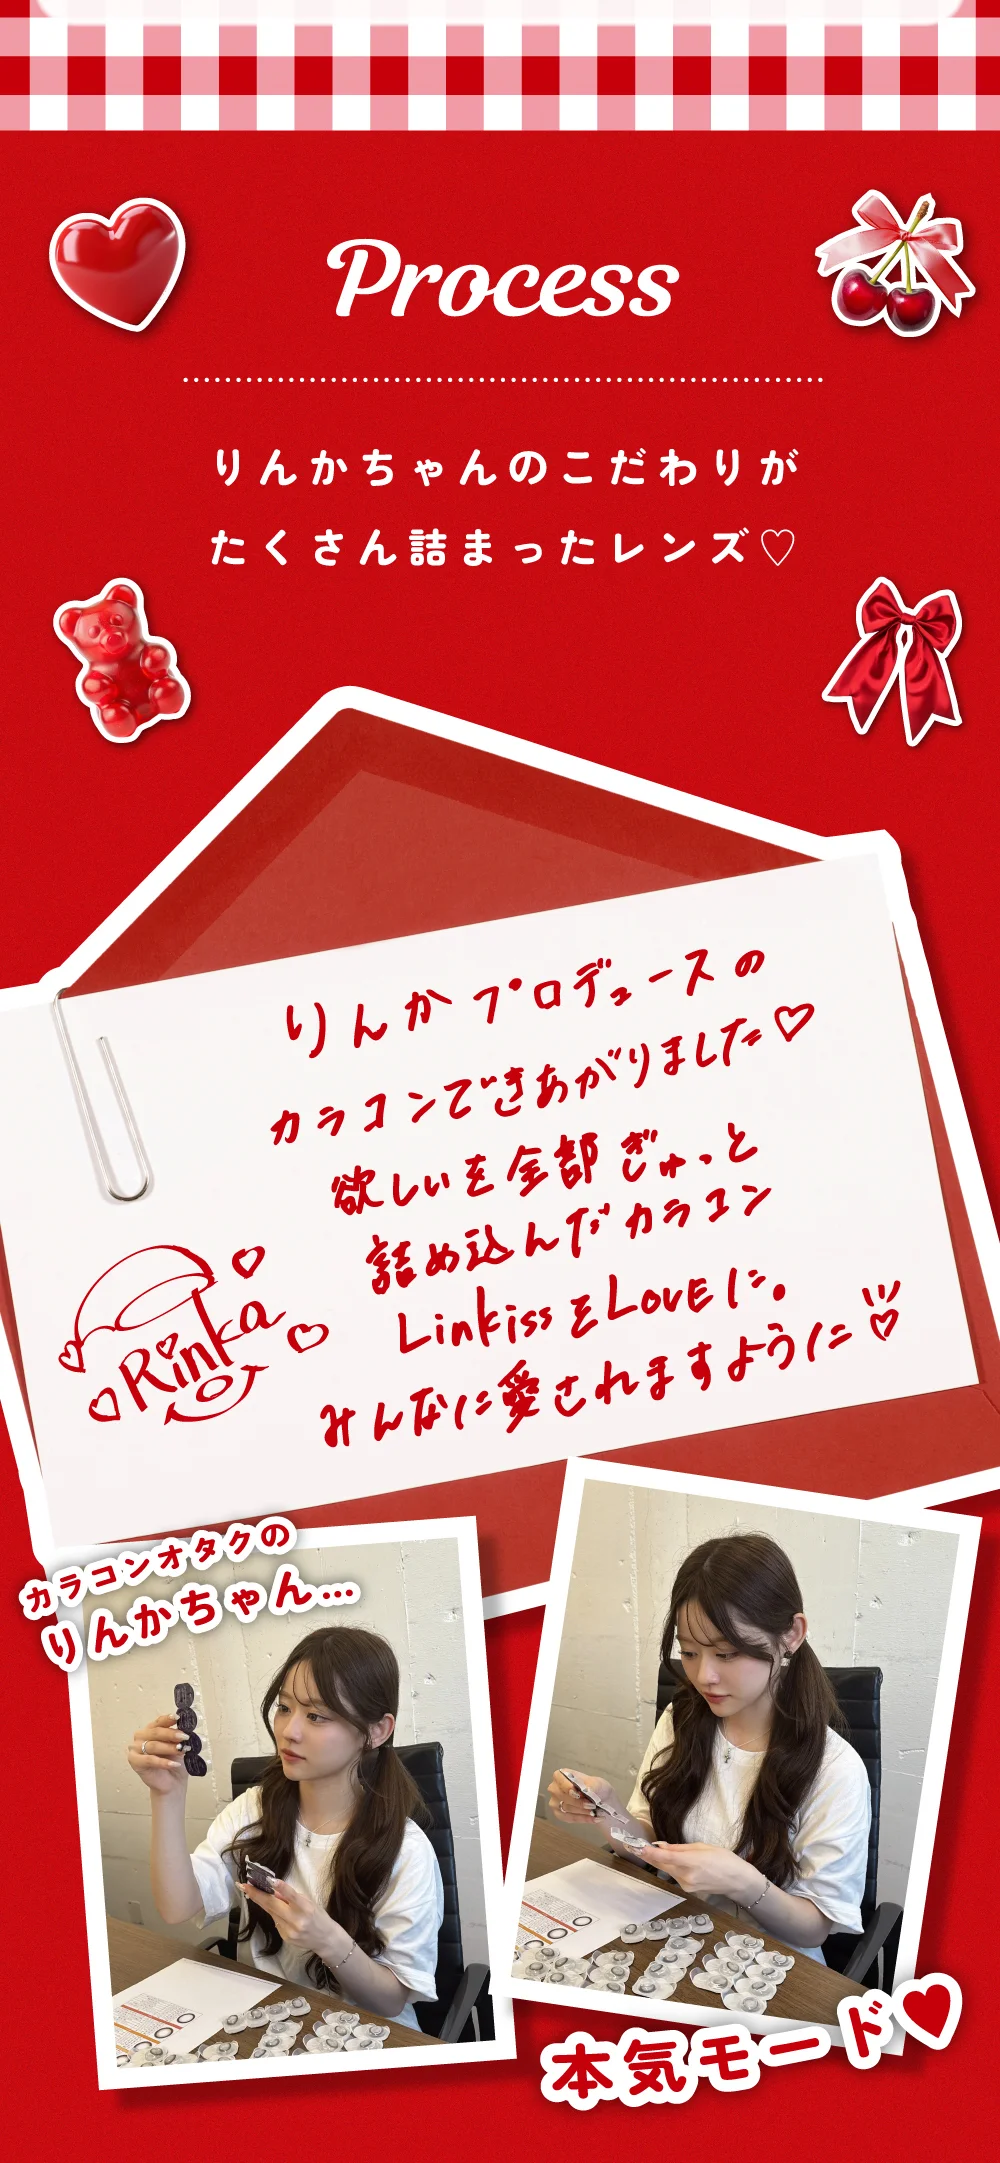 Process
りんかちゃんのこだわりが
たくさん詰まったレンズ♡
りんかプロデュースの
カラコンできあがりました♡
欲しいを全部ぎゅっと
詰め込んだカラコン
LinkissをLOVEに。
みんなに愛されますように♡
Rinka
カラコンオタクの
りんかちゃん…
本気モード♥